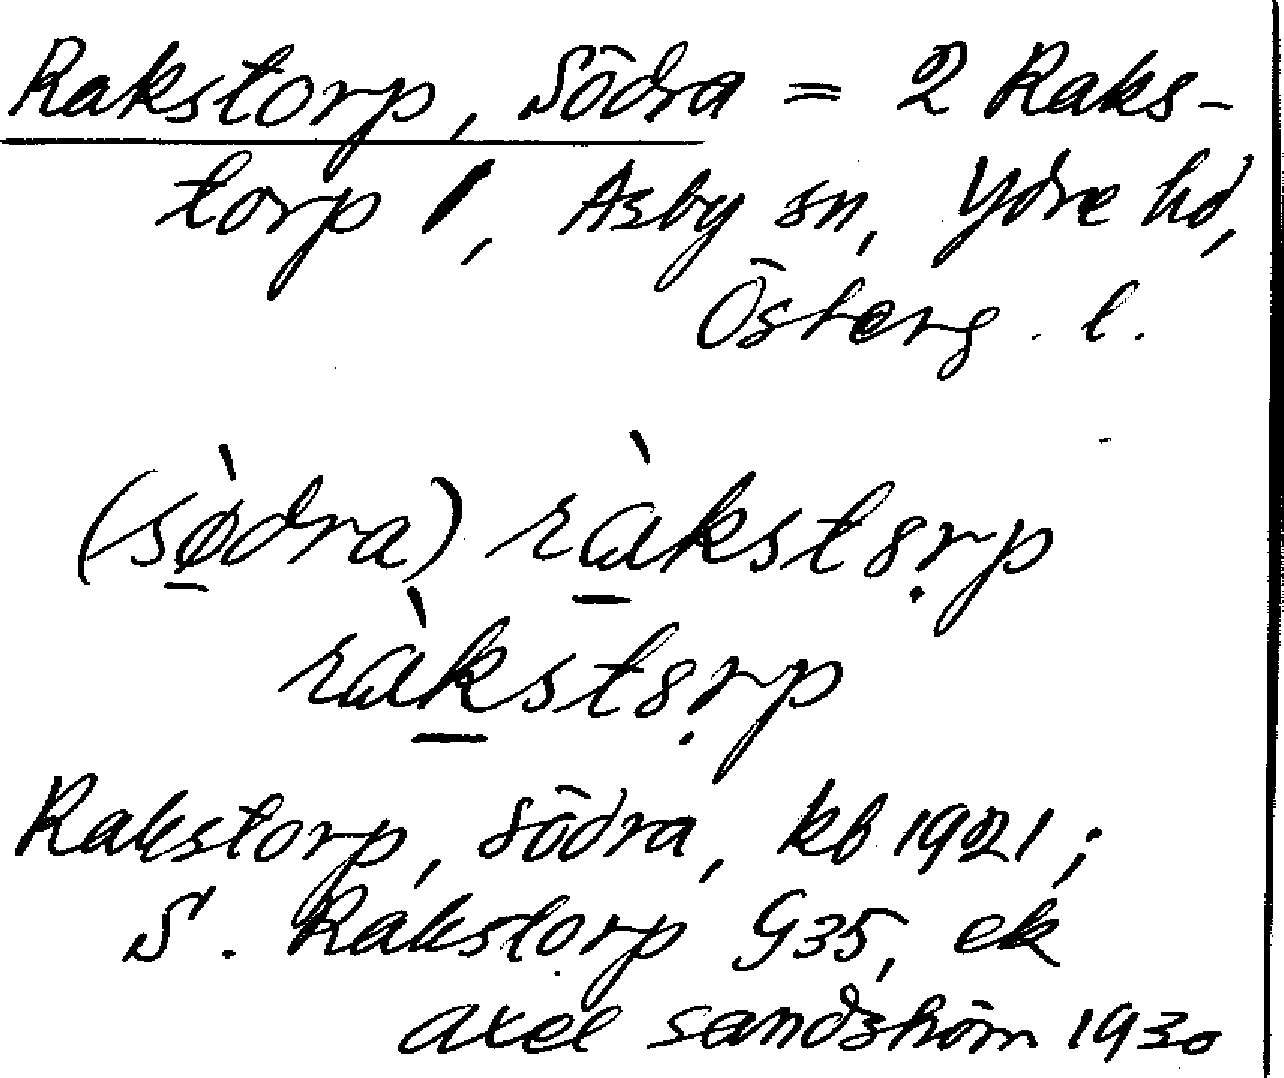 Rakstorp, Södra = 2 Raks-
torp 1, Asby sn, Ydre hd,
Österg. l.
(sø̀dra) ràkstȣrp
ràkstȣrp
Rakstorp, Södra, kb 1921;
S. Rakstorp G35, ek
Axel Sandström 1930